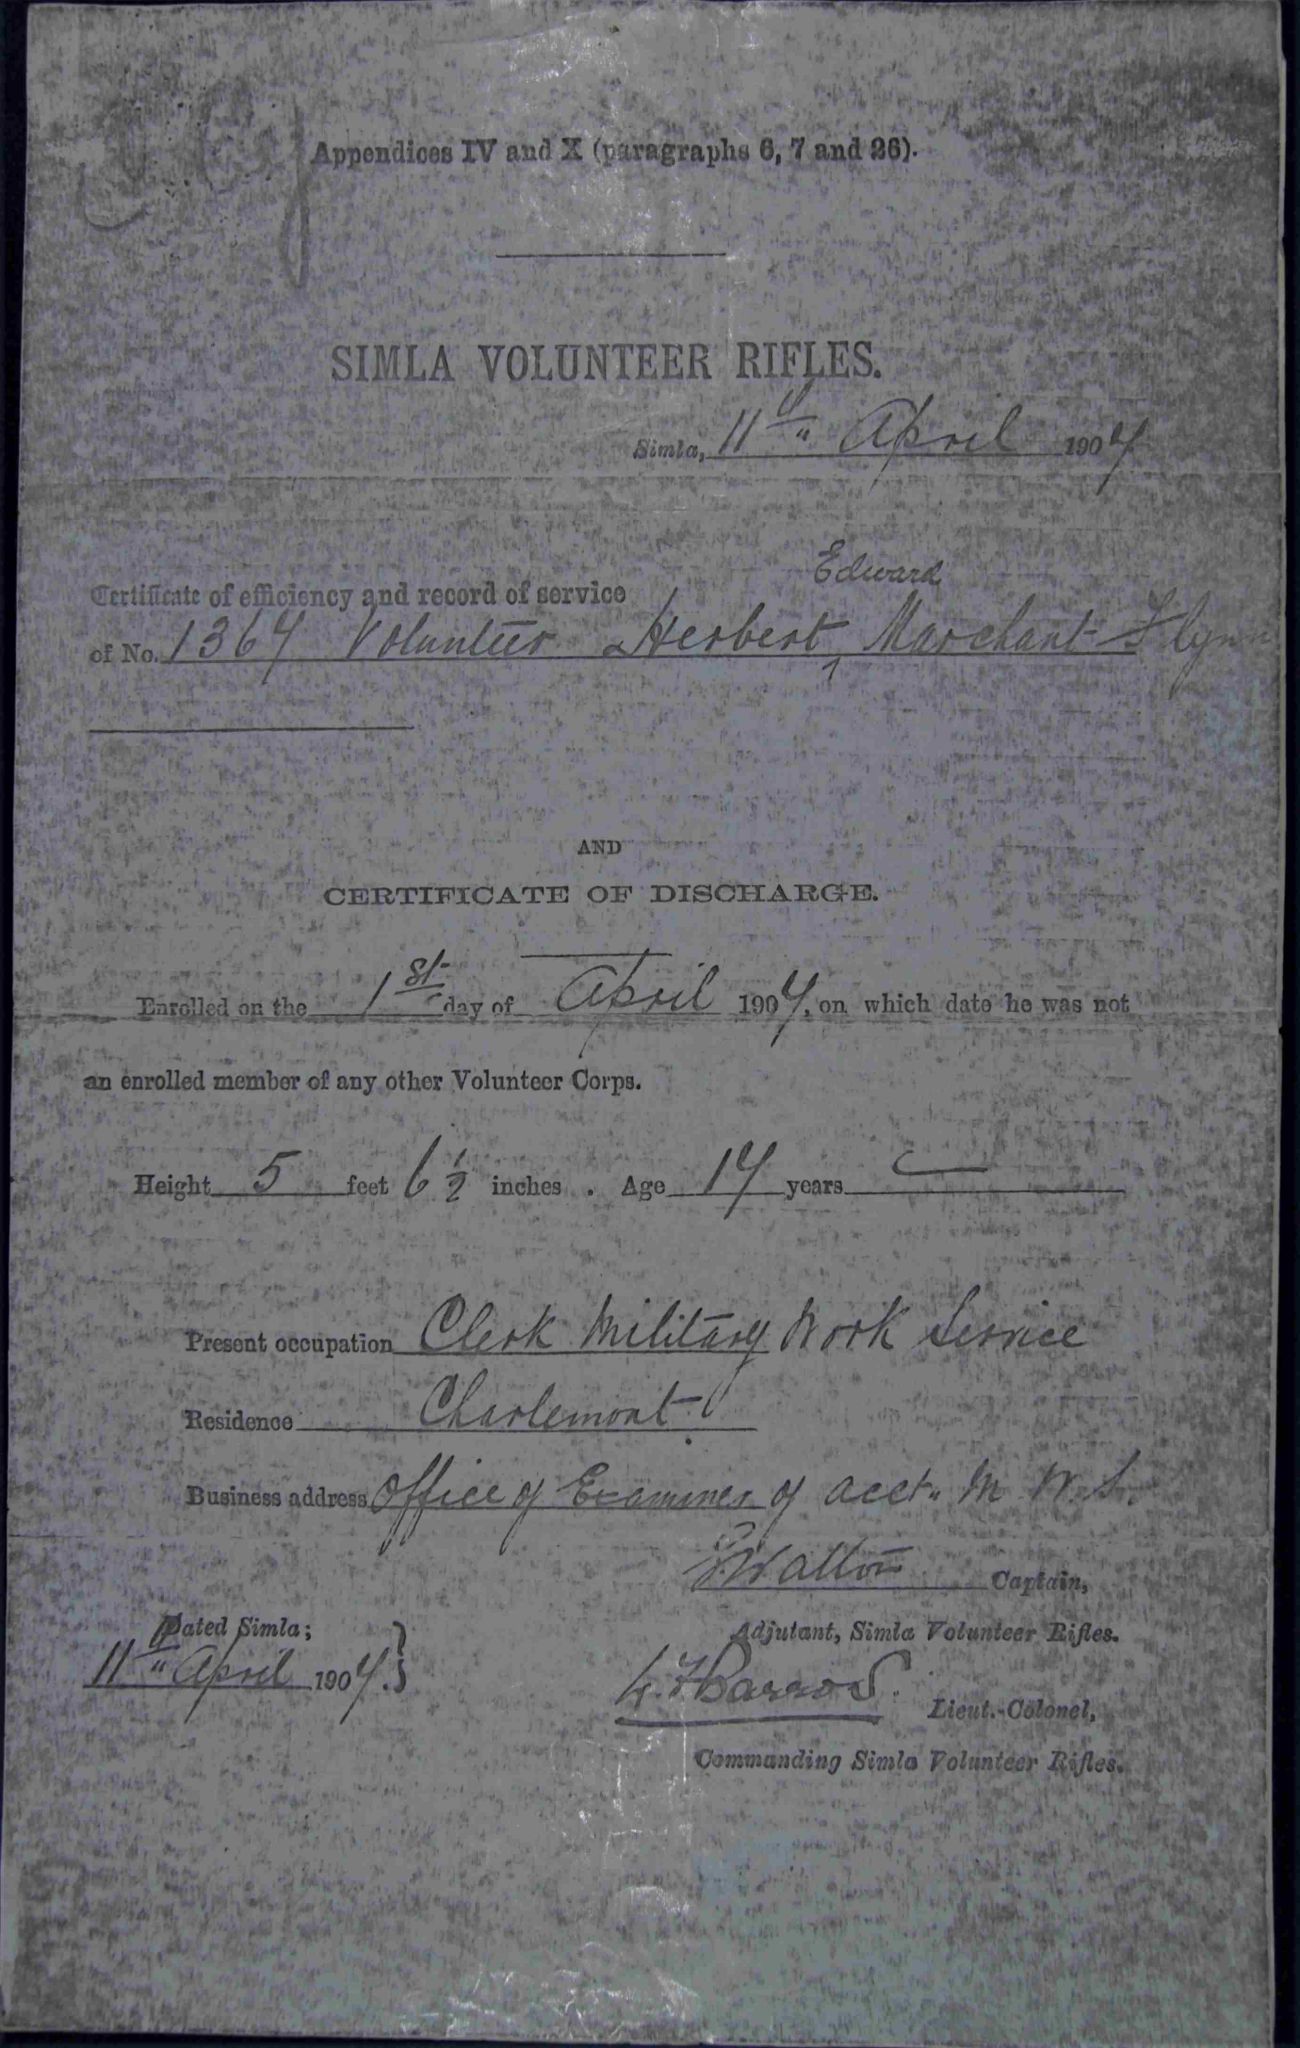 Appendices IV and X (paragraphs 6, 7 and 26).
SIMLA VOLUNTEER RIFLES.
Simla, 11th April 1904
Edward
Certificate of efficiency and record of service
of No. 1364 Volunteer Herbert ^ Marchant Flynn
AND
CERTIFICATE OF DISCHARGE.
Enrolled on the 1st day of April 1904, on which date he was not
an enrolled member of any other Volunteer Corps.
Height 5 feet 6 1/2 inches. Age 17 years
Present occupation Clerk Military Work Service
Residence Charlemont
Business address Office of Examiner of acct. M W.S.
Walton Captain,
Dated Simla;
Adjutant, Simla Volunteer Rifles.
11th April 1904.}
Barrow. Lieut.-Colonel,
Commanding Simla Volunteer Rifles.